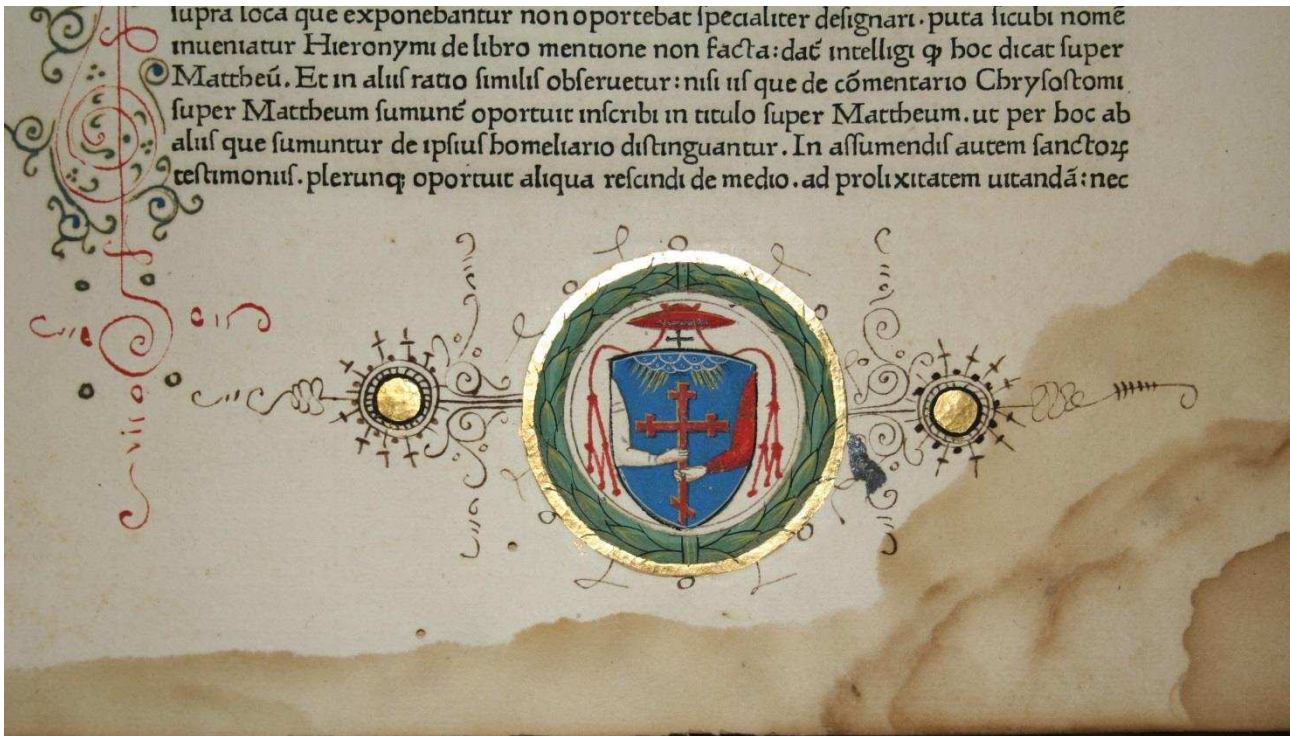 supra loca que exponebantur non oportebat specialiter designari. puta sicubi nomē
inueniatur Hieronymi de libro mentione non facta: dat̄ intelligi ꝙ hoc dicat super
Mattheū. Et in aliis ratio similis obseruetur: nisi iis que de cōmentario Chrysostomi
super Mattheum sumunt̄ oportuit inscribi in titulo super Mattheum. ut per hoc ab
aliis que sumuntur de ipsius homeliario distinguantur. In assumendis autem sanctoꝝ
testimoniis. plerunꝗ oportuit aliqua rescindi de medio. ad prolixitatem uitandā: nec